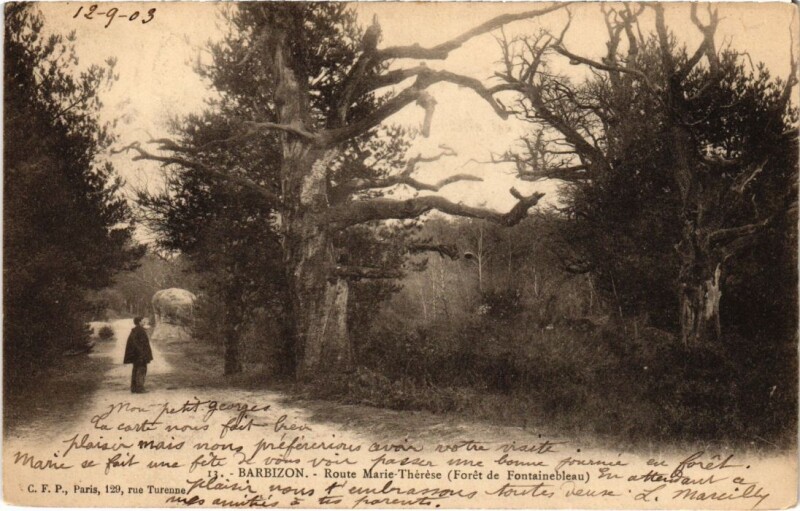 12-9-03
Mon petit georges
ta carte nous fait bien
plaisir mais nous préfèrerions avoir votre visite
Marie se fait une fête de vous voir passer une bonne journée en forêt.
11. - BARBIZON. - Route Marie-Thérèse (Forêt de Fontainebleau) En attendant ce
C. F. P., Paris, 129, rue Turenne plaisir nous t'embrassons toutes deux. L. Marcilly
mes amitiés à tes parents.